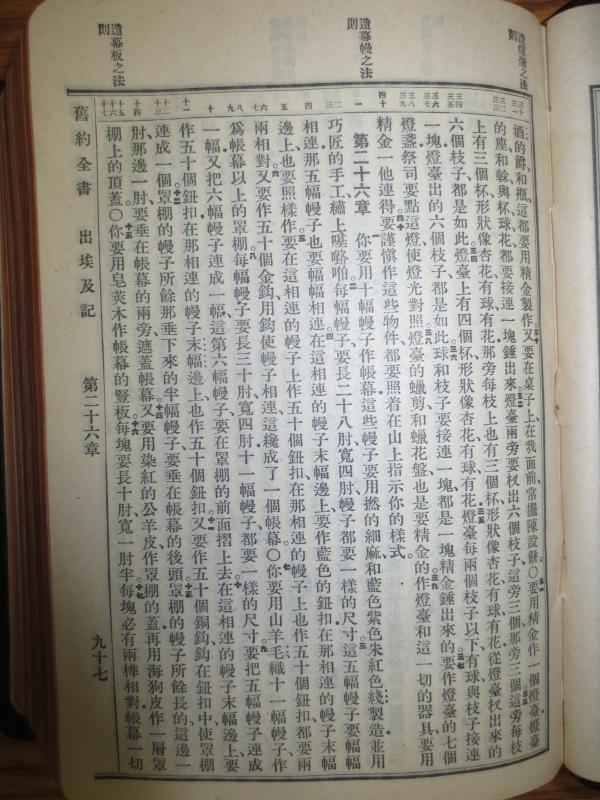 造燈檯之法則
造幕幔之法則
造幕板之法則
酒的爵和瓶、這都要用精金製作又要在桌子上在我面前常擺陳設餅〇要用精金作一個燈臺燈臺
的座和榦與杯球花都要接連一塊錘出來燈臺兩旁要杈出六個枝子這旁三個那旁三個這旁每枝
上有三個杯形狀像杏花有球有花那旁每枝上也有三個杯形狀像杏花有球有花從燈臺杈出來的
六個枝子都是如此燈臺上有四個杯形狀像杏花有球有花燈臺每兩個枝子以下有球與枝子接連
一塊燈臺出的六個枝子都是如此球和枝子要接連一塊都是一塊精金錘出來的要作燈臺的七個
燈盞祭司要點這燈使燈光對照燈臺的蠟剪和蠟花盤也是要精金的作燈臺和這一切的器具要用
精金一他連得要謹慎作這些物件都要照着在山上指示你的樣式
第二十六章 你要用十幅幔子作帳幕這些幔子要用撚的細麻和藍色紫色朱紅色綫製造並用
巧匠的手工繡上㗶㘔啪每幅幔子要長二十八肘寬四肘幔子都要一樣的尺寸這五幅幔子要幅幅
相連那五幅幔子也要幅幅相連在這相連的幔子末幅邊上要作藍色的鈕扣在那相連的幔子末幅
邊上也要照樣作要在這相連的幔子上作五十個鈕扣在那相連的幔子上也作五十個鈕扣都要兩
兩相對又要作五十個金鈎用鈎使幔子相連這纔成了一個帳幕〇你要用山羊毛織十一幅幔子作
爲帳幕以上的罩棚每幅幔子要長三十肘寬四肘十一幅幔子都要一樣的尺寸要把五幅幔子連成
一幅又把六幅幔子連成一幅這第六幅幔子要在罩棚的前面摺上去在這相連的幔子末幅邊上要
作五十個鈕扣在那相連的幔子末幅邊上也作五十個鈕扣又要作五十個銅鈎鈎在鈕扣中使罩棚
連成一個罩棚的幔子所餘那垂下來的半幅幔子要垂在帳幕的後頭罩棚的幔子所餘長的這邊一
肘那邊一肘要垂在帳幕的兩旁遮蓋帳幕又要用染紅的公羊皮作罩棚的蓋再用海狗皮作一層罩
棚上的頂蓋〇你要用皂莢木作帳幕的豎板每塊要長十肘寬一肘半每塊必有兩榫相對帳幕一切
舊約全書 出埃及記 第二十六章 九十七